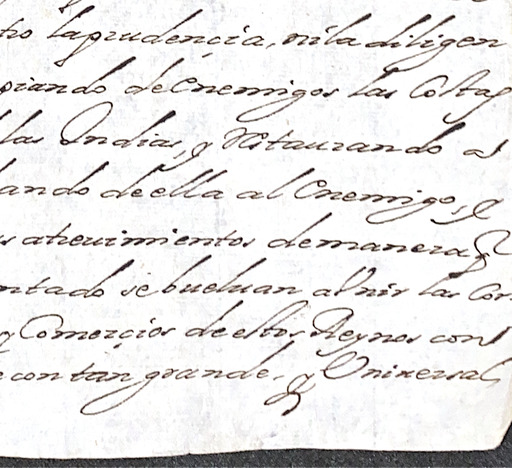 tro la prudençia, ni la diligen
piando de Enemigos las Costas
las Indias, y Restaurando a
lando de ella al Enemigo, y
s atreuimientos de manera q
ntado se bueluan a Vnir las Cor
y Comerçios de estos Reynos con
e con tan grande, y Vniversal